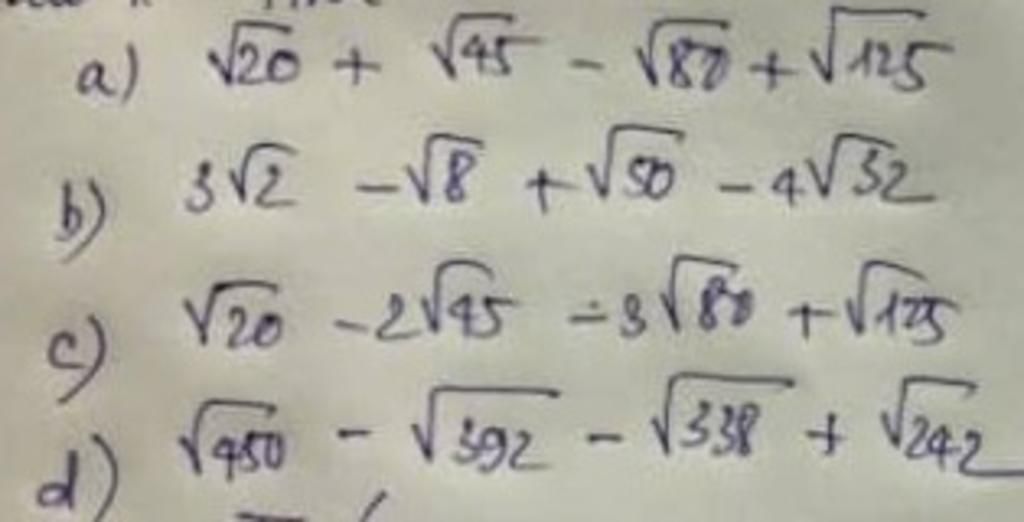 a) √20 + √45 - √80 + √125
b) 3√2 - √8 + √50 - 4√32
c) √20 - 2√45 - 3√80 + √125
d) √450 - √392 - √338 + √242